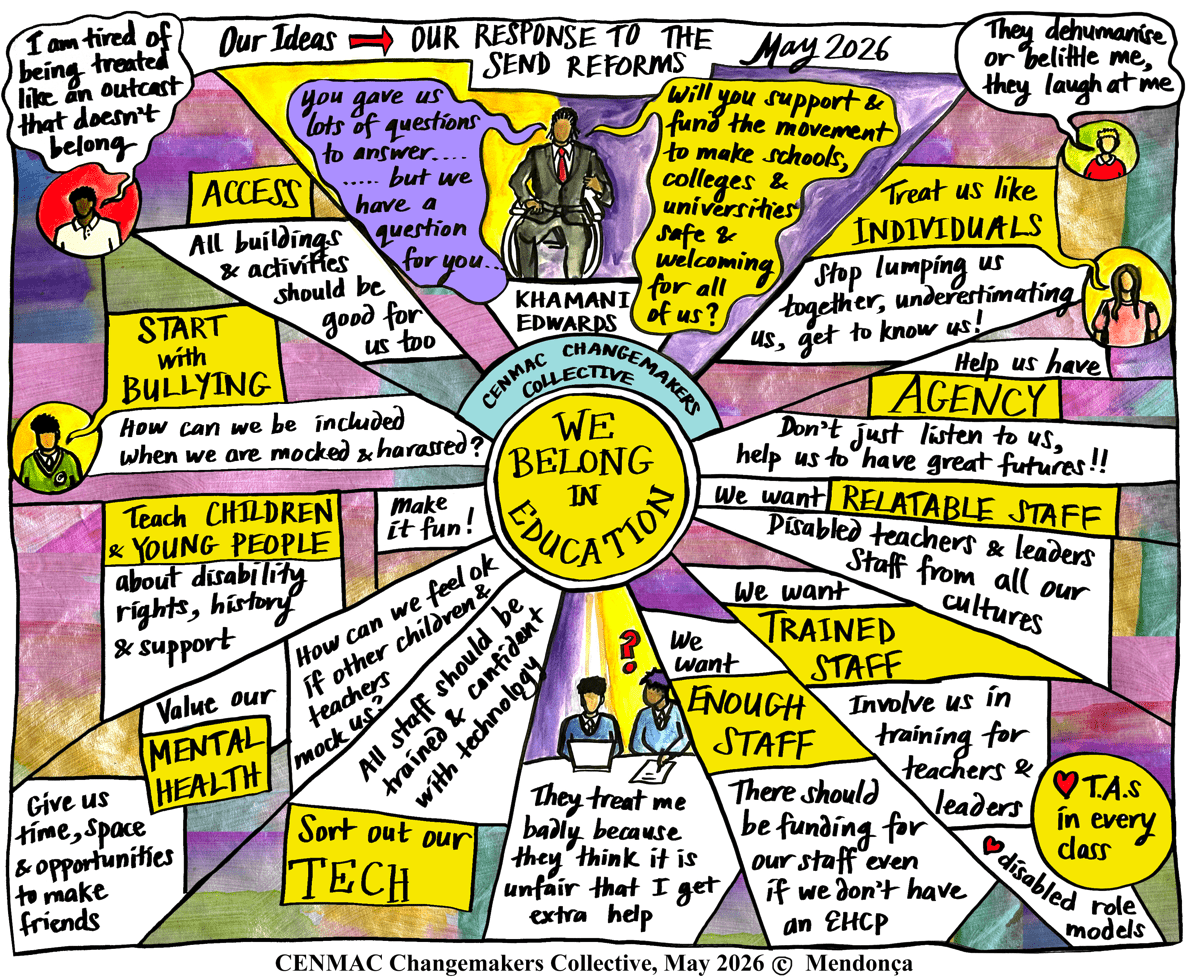 Our Ideas → OUR RESPONSE TO THE
SEND REFORMS
May 2026
I am tired of
being treated
like an outcast
that doesn't
belong
They dehumanise
or belittle me,
they laugh at me
You gave us
lots of questions
to answer.....
..... but we
have a
question
for you...
Will you support &
fund the movement
to make schools,
colleges &
universities
safe &
welcoming
for all
of us?
KHAMANI
EDWARDS
CENMAC CHANGEMAKERS
COLLECTIVE
WE
BELONG
IN
EDUCATION
ACCESS
All buildings
& activities
should be
good for
us too
START
with
BULLYING
How can we be included
when we are mocked & harassed?
Teach CHILDREN
& YOUNG PEOPLE
about disability
rights, history
& support
make
it fun!
Value our
MENTAL
HEALTH
Give us
time, space
& opportunities
to make
friends
How can we feel ok
if other children &
teachers
mock us?
All staff should be
trained & confident
with technology
Sort out our
TECH
?
They treat me
badly because
they think it is
unfair that I get
extra help
Treat us like
INDIVIDUALS
Stop lumping us
together, underestimating
us, get to know us!
Help us have
AGENCY
Don't just listen to us,
help us to have great futures!!
We want
RELATABLE STAFF
Disabled teachers & leaders
Staff from all our
cultures
We want
TRAINED
STAFF
Involve us in
training for
teachers &
leaders
We
want
ENOUGH
STAFF
There should
be funding for
our staff even
if we don't have
an EHCP
♥ T.A.s
in every
class
♥ disabled role
models
CENMAC Changemakers Collective, May 2026 © Mendonça